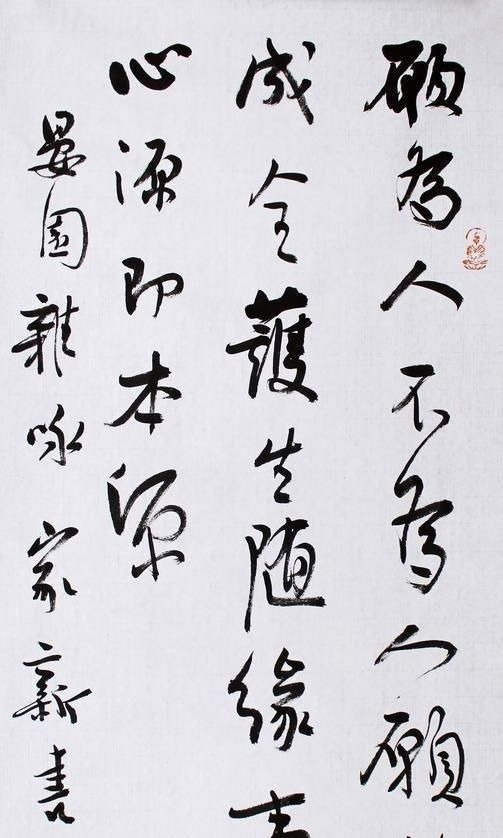 願為人不為人願
成全護生随緣
心源即本源
晏園雜咏家新書